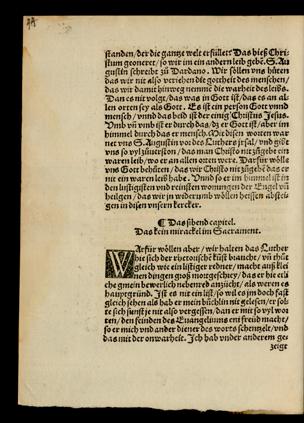 standen/der die gantze welt erfüllet? Das hieß Chri
stum geoneret/so wir im ein andern leib gebē. S. Au
gustin schreibt zů Dardano. Wir söllen vns hüten
das wir nit also veriehen die gottheit des menschen/
das wir damit hinweg nemmē die warheit des leibs.
Dan es nit volgt/das was in Gott ist/das es an al
len orten sey als Gott. Es ist ein person Gott vnnd
mensch/vnnd das beid ist der einig Christus Jesus.
Vmb vñ vmb ist er durch das/dz er Gott ist/aber im
himmel durch das er mensch. Mit disen worten war
net vns S. Augustin vor des Luthers irsal/vnd gibt
vns so vyl zů verston/das man Christo nit zůgebe ein
waren leib/wo er an allen orten were. Darfür wölle
vns Gott behüten/das wir Christo nit zůgebē das er
nit ein waren leib habe. Vnnd so er im himmel ist in
den lustigesten vnd reinsten wonungen der Engel vñ
heilgen/das wir in widerumb wöllen heissen abstei
gen in disen vnsern kercker.
¶ Das sibend capitel.
Das kein mirackel im Sacrament.
Warfür wöllen aber/wir halten das Luther
hie sich der rhetorischē küst braucht/vñ thůt
gleich wie ein listiger redner/macht auß klei
nen dingen groß mortgeschrey/das er hie etli
che gmein bewerlich nebenred anzücht/als weren es
hauptgründ. Ist es nit ein list/so wil es im doch fast
gleich sehen als hab er mein büchlin nit gelesen/er sol
te sich sunst je nit also vergessen/dan er mit so vyl wor
ten/den feinden des Euangeliums ein freud macht/
so er mich vnd ander diener des worts schentzelt/vnd
das mit der onwarheit. Ich hab vnder anderem ge
zeigt